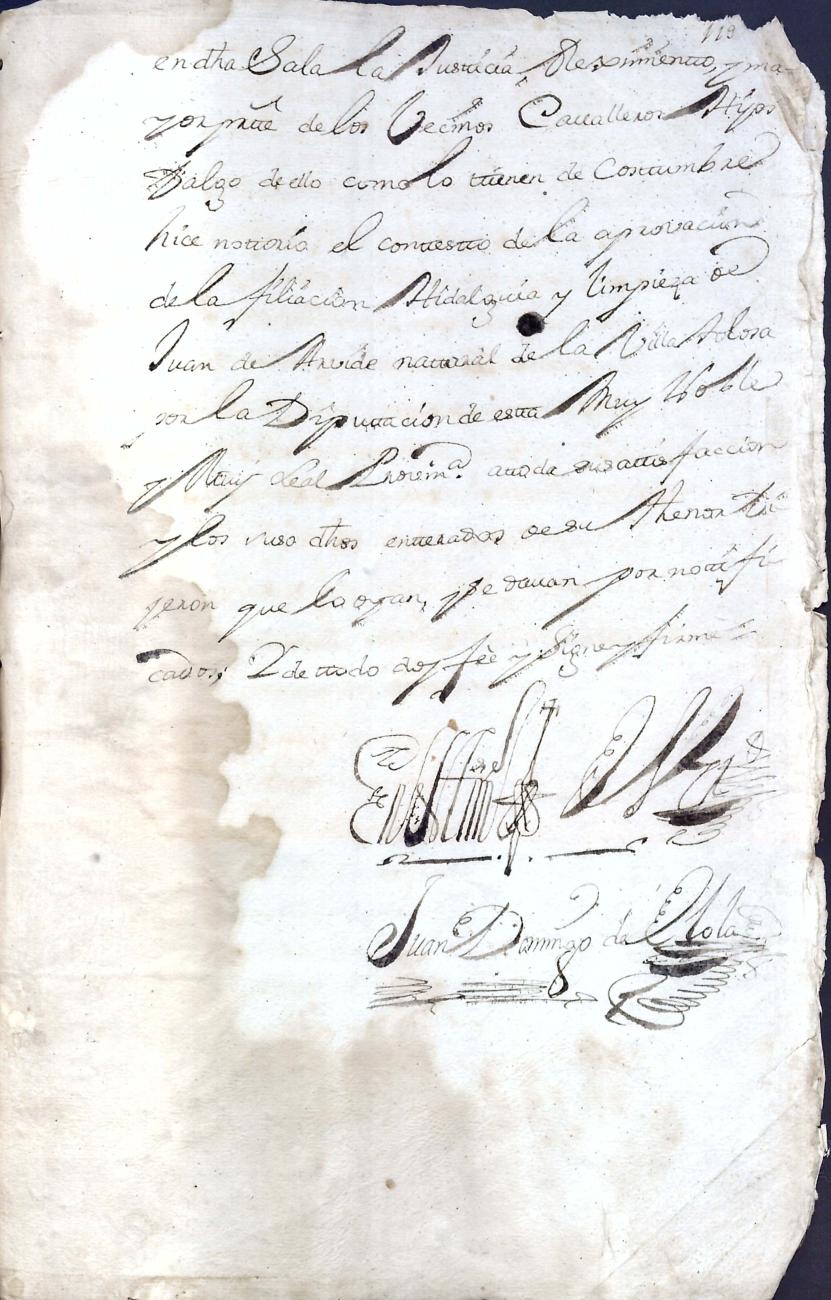 119
en dha Sala la Justicia Reximiento, y ma-
yor partte de los Vecinos Cavalleros Hijos
Dalgo de ello como lo ttienen de Costtumbre
hice nottorio el conttestto de la aprovacion
de la filiacion Hidalguia y limpieza de
Juan de natural de la Villa Tolosa
por la Diputtacion de estta Muy Noble
y Muy Leal Provinᵃ. a ttoda su sattisfaccion
y los suso dhos entterados de su Thenor di
jeron que lo oyan, y se davan por nottifi
cados; Y de ttodo doy fee y Signe y firme
En testtimᵒ de Vᵈ
Juan Domingo de Elola